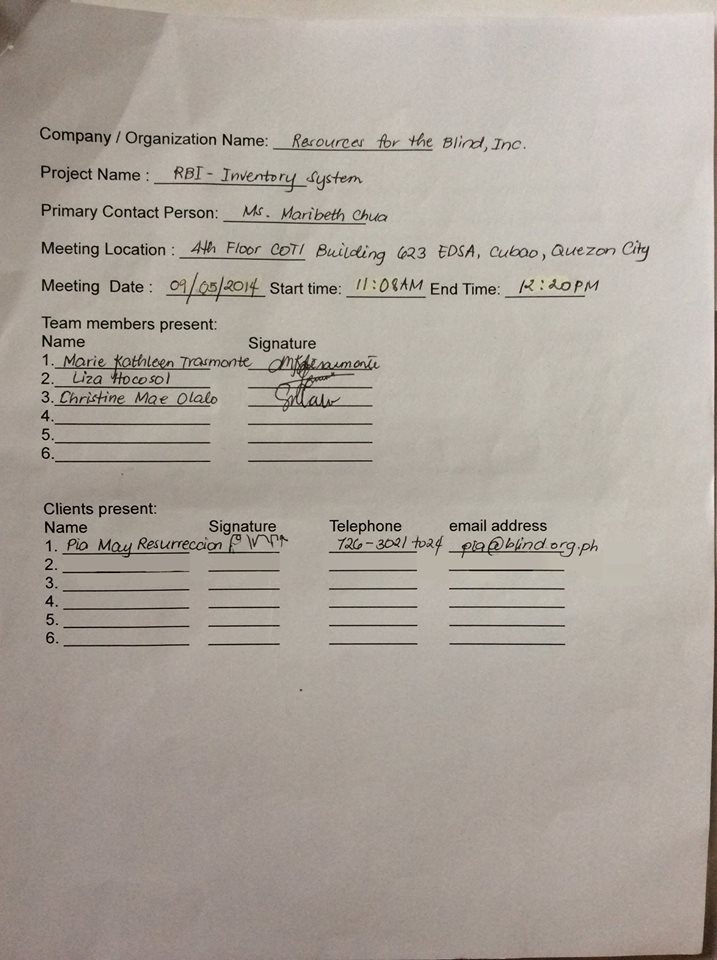 Company / Organization Name: Resources for the Blind, Inc.
Project Name : RBI - Inventory System
Primary Contact Person: Ms. Maribeth Chua
Meeting Location : 4th Floor COTI Building 623 EDSA, Cubao, Quezon City
Meeting Date : 09/05/2014 Start time: 11:08AM End Time: 12:20PM
Team members present:
Name Signature
1. Marie Kathleen Trasmonte
2. Liza Hocosol
3. Christine Mae Olalo
4.
5.
6.
Clients present:
Name Signature Telephone email address
1. Pia May Resurreccion 726-3021 to24 pia@blind.org.ph
2.
3.
4.
5.
6.